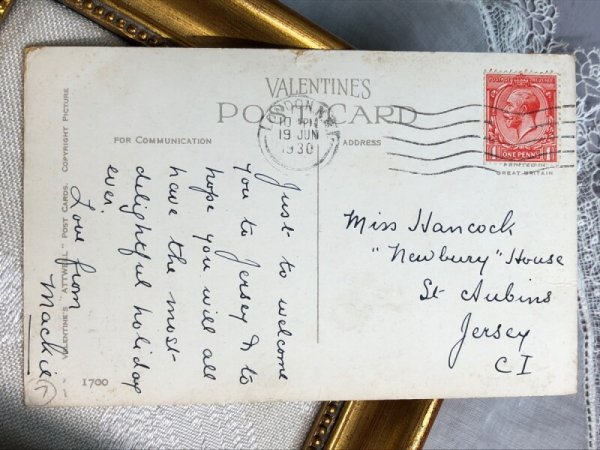 VALENTINE'S
POSTCARD
FOR COMMUNICATION
ADDRESS
LONDON
19 JUN
1930
POSTAGE REVENUE
ONE PENNY
PRINTED IN
GREAT BRITAIN
Just to welcome
you to Jersey & to
hope you will all
have the most
delightful holiday
ever.
Love from
Mackie
Miss Hancock
"Newbury" House
St Aubins
Jersey
C I
VALENTINE'S "ATTWELL" POST CARDS. COPYRIGHT PICTURE
1700